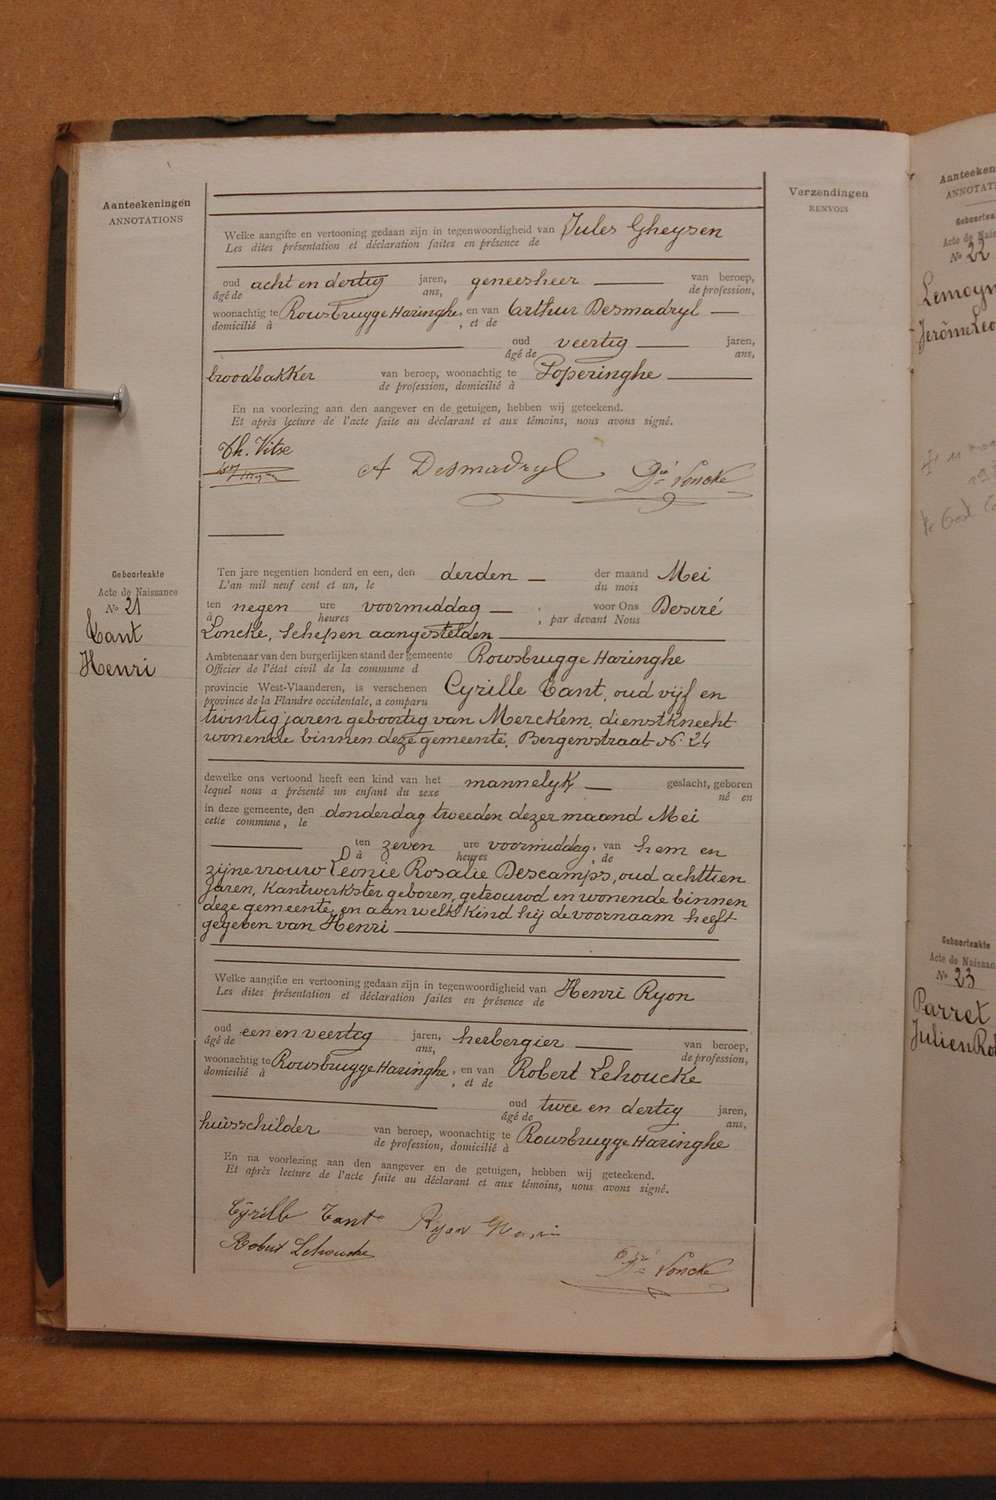 Aanteekeningen
ANNOTATIONS
Verzendingen
RENVOIS
Welke aangifte en vertooning gedaan zijn in tegenwoordigheid van Jules Gheysen
Les dites présentation et déclaration faites en présence de
oud acht en dertig jaren, geneesheer van beroep,
âgé de ans, de profession,
woonachtig te Rousbrugge Haringhe, en van Arthur Desmadryl
domicilié à , et de
oud veertig jaren,
âgé de ans,
broodbakker van beroep, woonachtig te Poperinghe
de profession, domicilié à
En na voorlezing aan den aangever en de getuigen, hebben wij geteekend.
Et après lecture de l'acte faite au déclarant et aux témoins, nous avons signé.
Th. Vitse
A Desmadryl Dré Loncke
Geboorteakte
Acte de Naissance
No 21
Tant
Henri
Ten jare negentien honderd en een, den derden der maand Mei
L'an mil neuf cent et un, le du mois
ten negen ure voormiddag , voor Ons Desiré
à heures , par devant Nous
Loncke, Schepen aangestelden
Ambtenaar van den burgerlijken stand der gemeente Rousbrugge Haringhe
Officier de l'état civil de la commune d
provincie West-Vlaanderen, is verschenen Cyrille Tant, oud vijf en
province de la Flandre occidentale, a comparu
twintig jaren geboortig van Merckem, dienstknecht
wonende binnen deze gemeente, Bergenstraat No 24
dewelke ons vertoond heeft een kind van het mannelyk geslacht, geboren
lequel nous a présenté un enfant du sexe né en
in deze gemeente, den donderdag tweeden dezer maand Mei
cette commune, le
ten zeven ure voormiddag, van hem en
à heures , de
zijne vrouw Leonie Rosalie Descamps, oud achttien
jaren, Kantwerkster geboren, getrouwd en wonende binnen
deze gemeente, en aan welk kind hij de voornaam heeft
gegeven van Henri
Welke aangifte en vertooning gedaan zijn in tegenwoordigheid van Henri Ryon
Les dites présentation et déclaration faites en présence de
oud een en veertig jaren, herbergier van beroep,
âgé de ans, de profession,
woonachtig te Rousbrugge Haringhe, en van Robert Lehoucke
domicilié à , et de
oud twee en dertig jaren,
âgé de ans,
huisschilder van beroep, woonachtig te Rousbrugge Haringhe
de profession, domicilié à
En na voorlezing aan den aangever en de getuigen, hebben wij geteekend.
Et après lecture de l'acte faite au déclarant et aux témoins, nous avons signé.
Cyrille Tant Ryon Henri
Robert Lehoucke
Dré Loncke
Aanteeken
ANNOTATI
Geboortea
Acte de Nais
No 22
Lemoyn
Jerôme Leo
Geboorteakte
Acte de Naissanc
No 23
Parret
Julien Ro